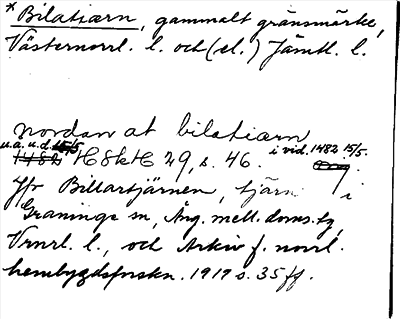 *Bilatiærn, gammalt gränsmärke,
Västernorrl. l. och (el.) Jämtl. l.
nordan at bilatiærn
u.a. u.d. 15/5 i vid. 1482 15/5.
1482 HSkH 29, s. 46.
Jfr Billartjärnen, tjärn i
Graninge sn, Ång. mell. doms. tg,
Vrnrl. l., och Arkiv f. norrl.
hembygdsforskn. 1917 s. 35 ff.